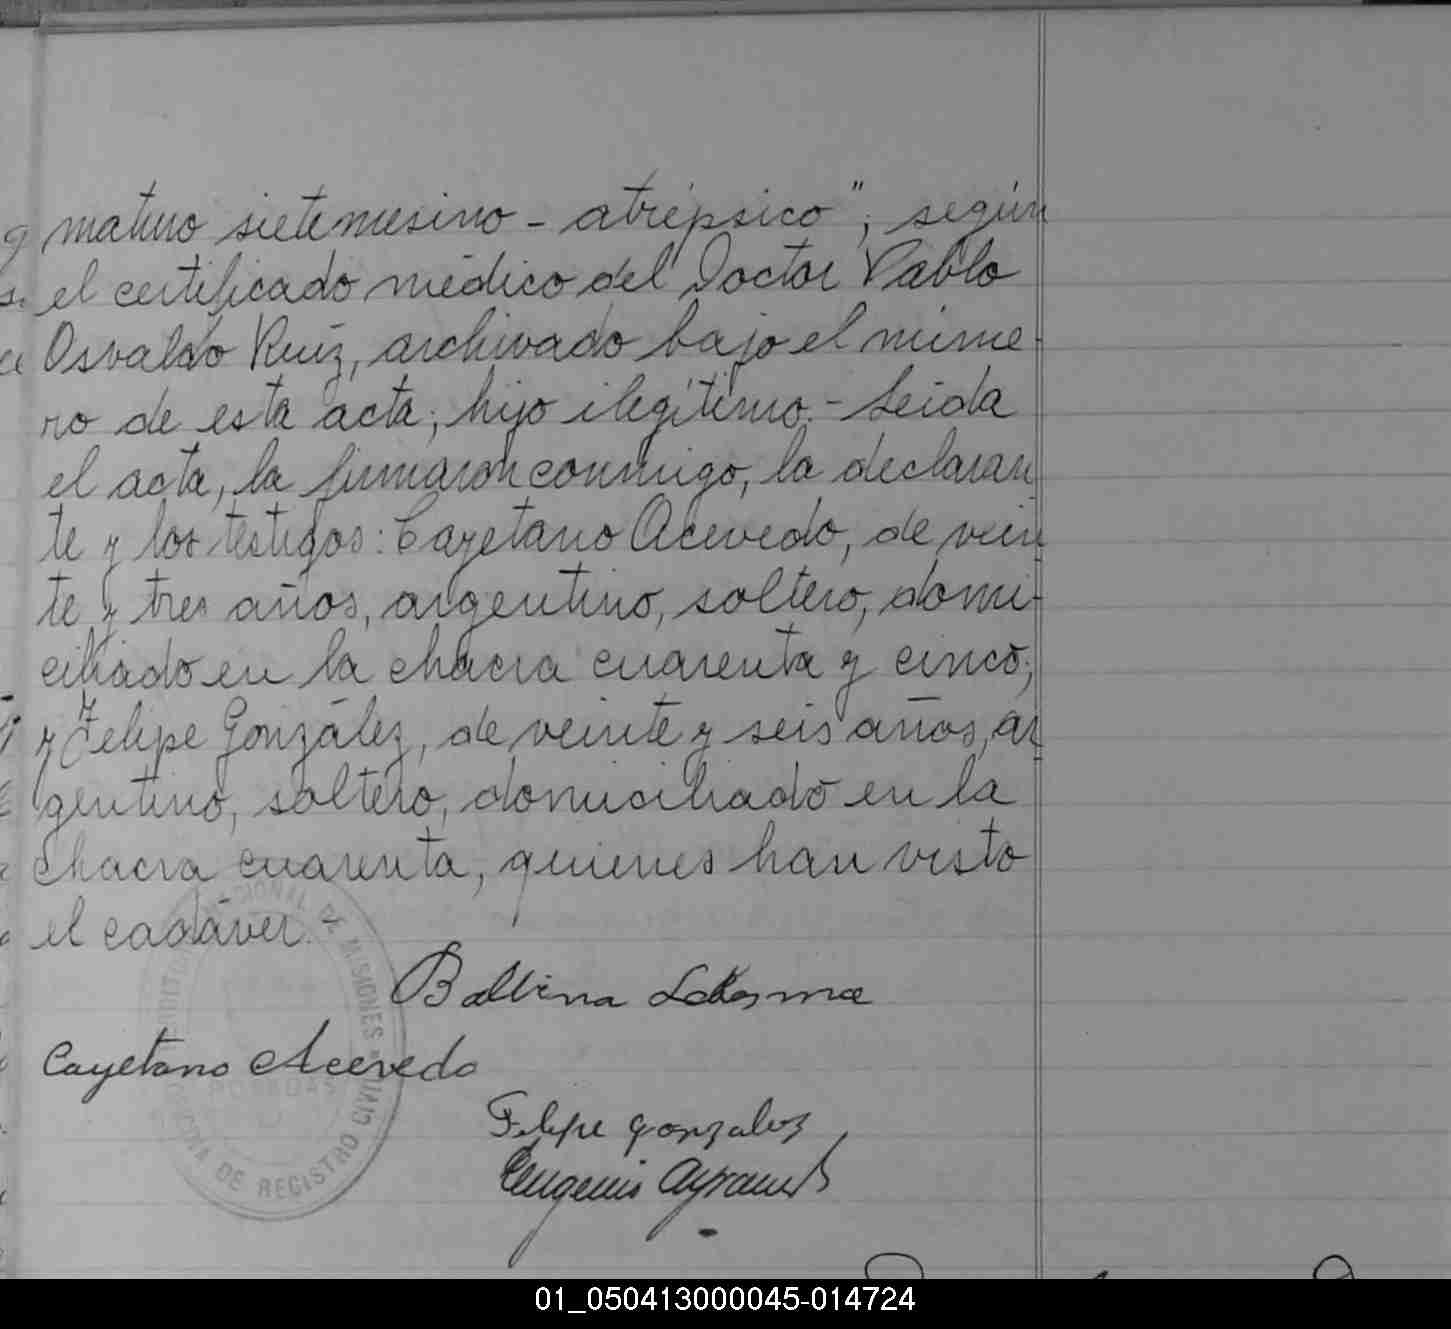 maturo sietemesino - atrépsico", según
el certificado médico del Doctor Pablo
Osvaldo Ruíz, archivado bajo el núme-
ro de esta acta; hijo ilegítimo.- Leída
el acta, la firmaron conmigo, la declaran
te y los testigos: Cayetano Acevedo, de vein
te y tres años, argentino, soltero, domi-
ciliado en la chacra cuarenta y cinco;
y Felipe González, de veinte y seis años, ar
gentino, soltero, domiciliado en la
chacra cuarenta, quienes han visto
el cadáver.
Balbina Ledesma
Cayetano Acevedo
Felipe gonzalez
Eugenio
NACIONAL DE MISIONES
POSADAS
OFICINA DE REGISTRO CIVIL
01_050413000045-014724